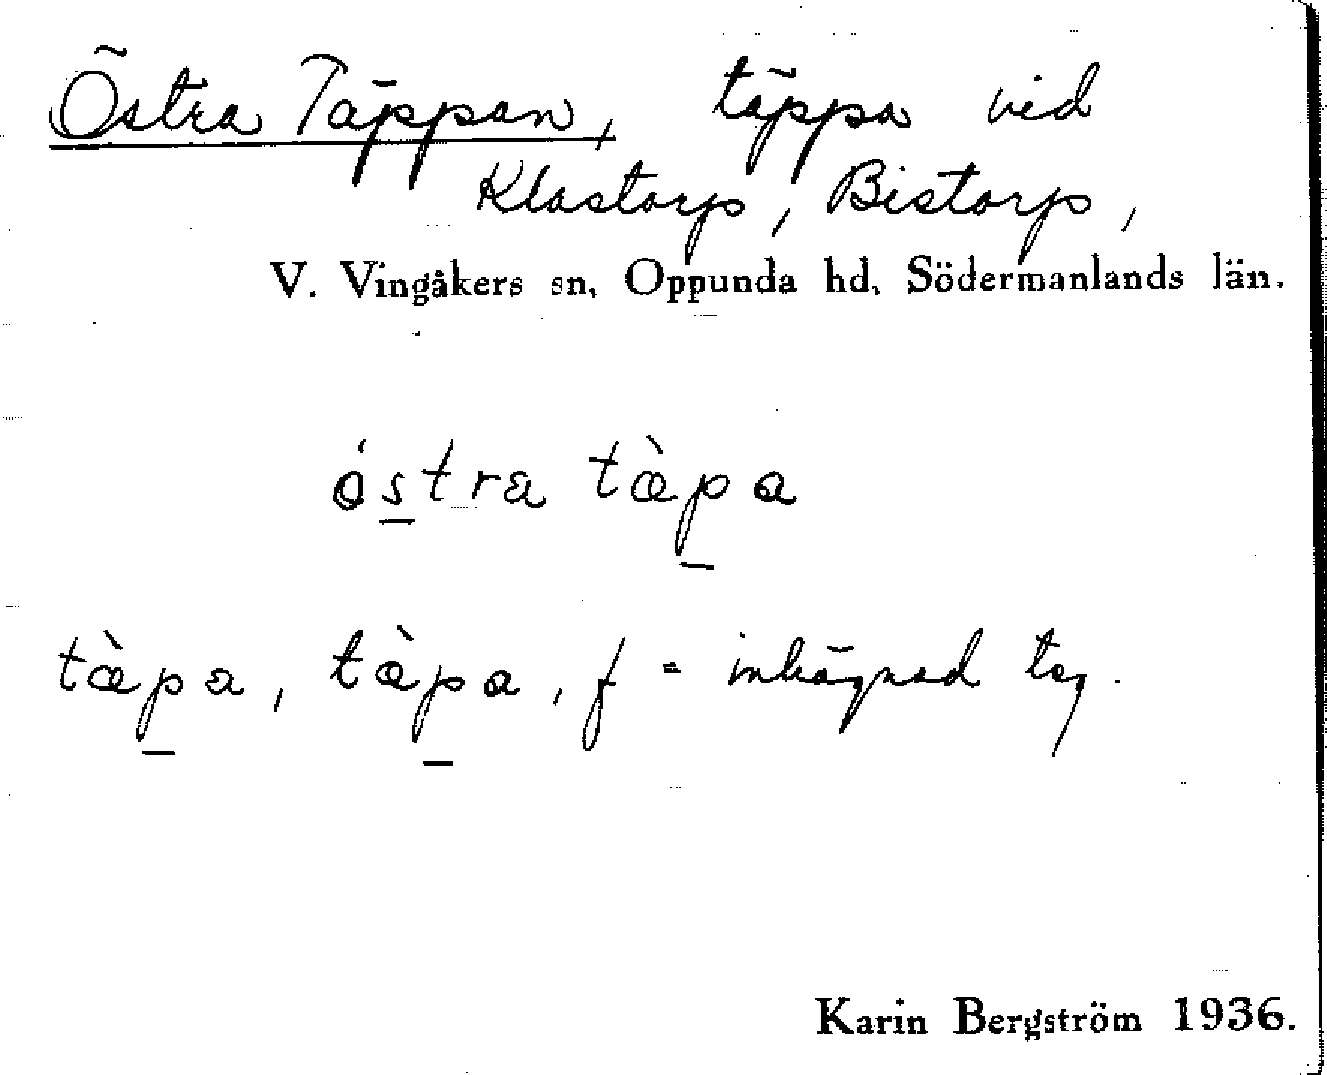 Östra Täppan, täppa vid
Klastorp, Bistorp,
V. Vingåkers sn, Oppunda hd, Södermanlands län.
ǿstra tæ̀pa
tæ̀pa, tæ̀pa, f = inhägnad teg.
Karin Bergström 1936.